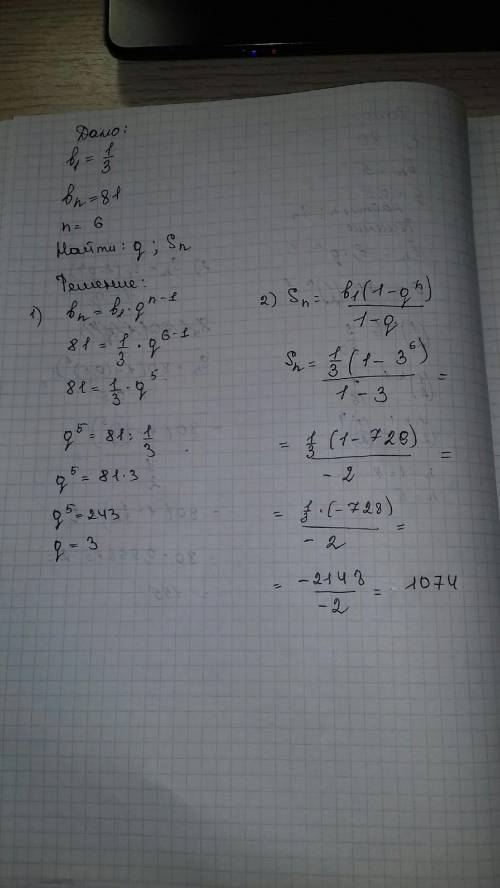 Дано:
b₁ = 1/3
bₙ = 81
n = 6
Найти: q ; Sₙ
Решение:
1) bₙ = b₁ · qⁿ⁻¹
81 = 1/3 · q⁶⁻¹
81 = 1/3 · q⁵
q⁵ = 81 : 1/3
q⁵ = 81 · 3
q⁵ = 243
q = 3
2) Sₙ = b₁(1 - qⁿ) / 1 - q
Sₙ = 1/3 (1 - 3⁶) / 1 - 3 =
= 1/3 (1 - 729) / - 2 =
= 1/3 · (-728) / - 2 =
= -2148 / -2 = 1074